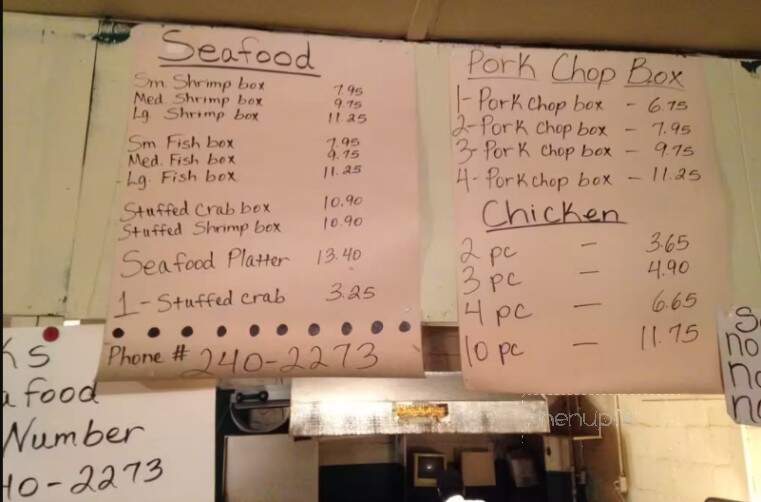 Seafood
Sm Shrimp box 7.95
Med. Shrimp box 9.75
Lg. Shrimp box 11.25
Sm Fish box 7.95
Med. Fish box 9.75
Lg. Fish box 11.25
Stuffed Crab box 10.90
Stuffed Shrimp box 10.90
Seafood Platter 13.40
1 - Stuffed crab 3.25
Phone # 240-2273
Pork Chop Box
1- Pork chop box - 6.75
2- Pork chop box - 7.95
3- Pork chop box - 9.75
4- Pork chop box - 11.25
Chicken
2 pc - 3.65
3 pc - 4.90
4 pc - 6.65
10 pc - 11.75
food
Number
40-2273
no